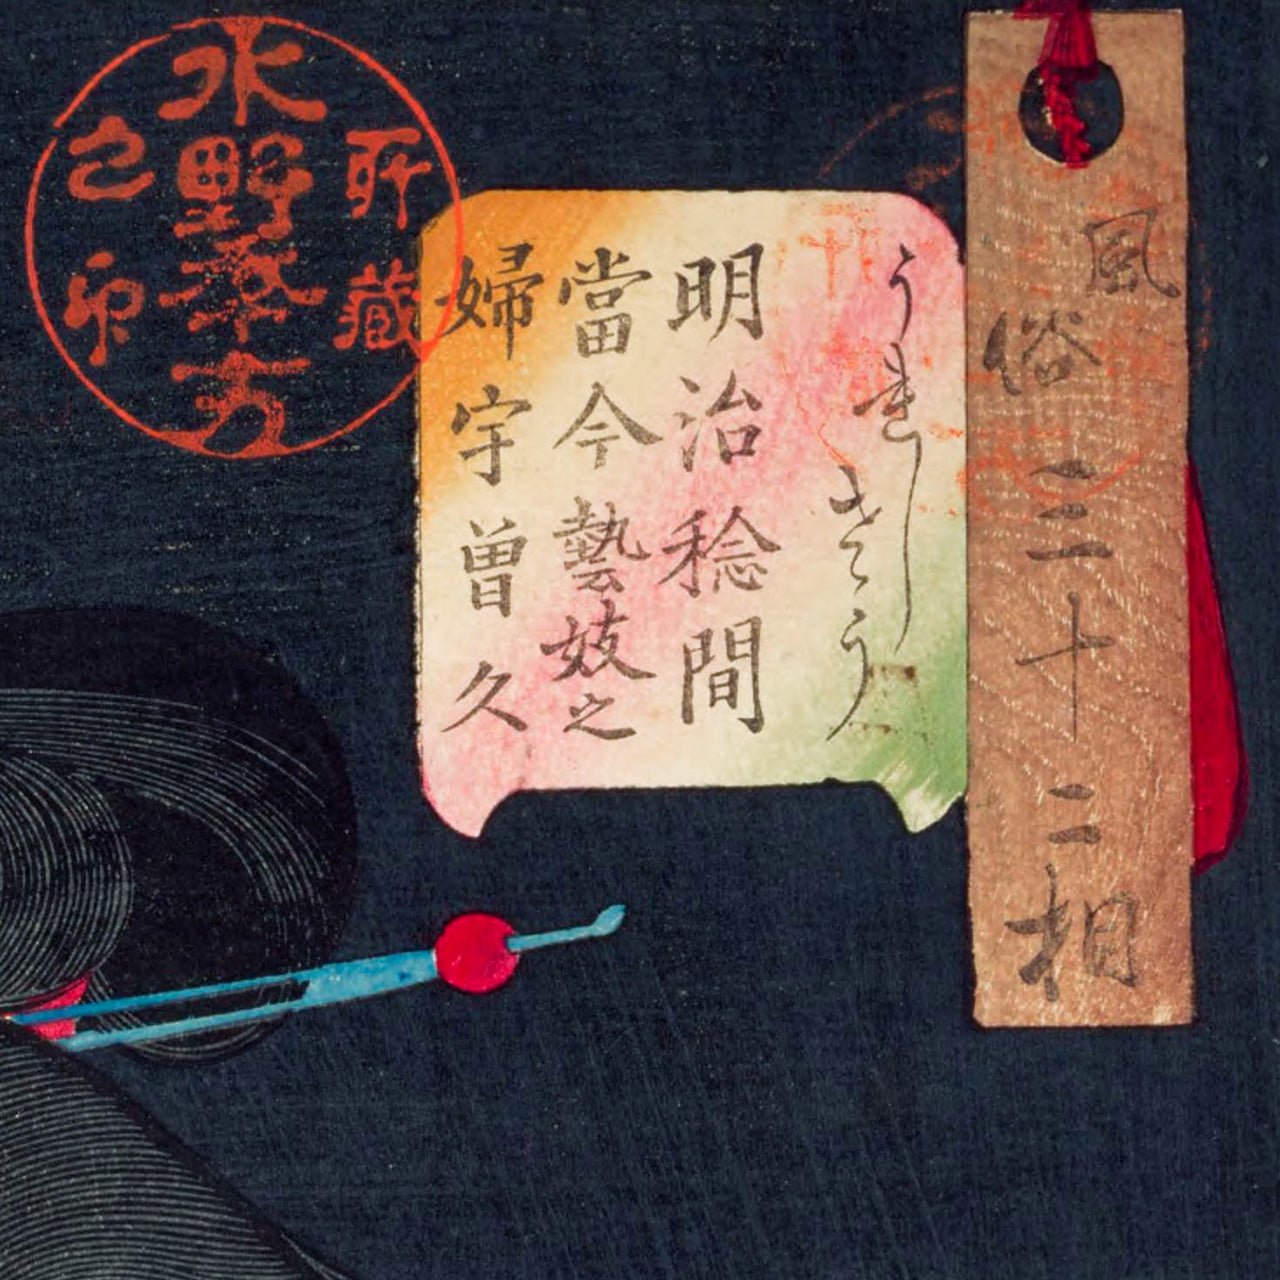 風俗三十二相
うれしさう
明治稔間
當今藝妓之
婦宇曽久
水野秊方
所藏
之印